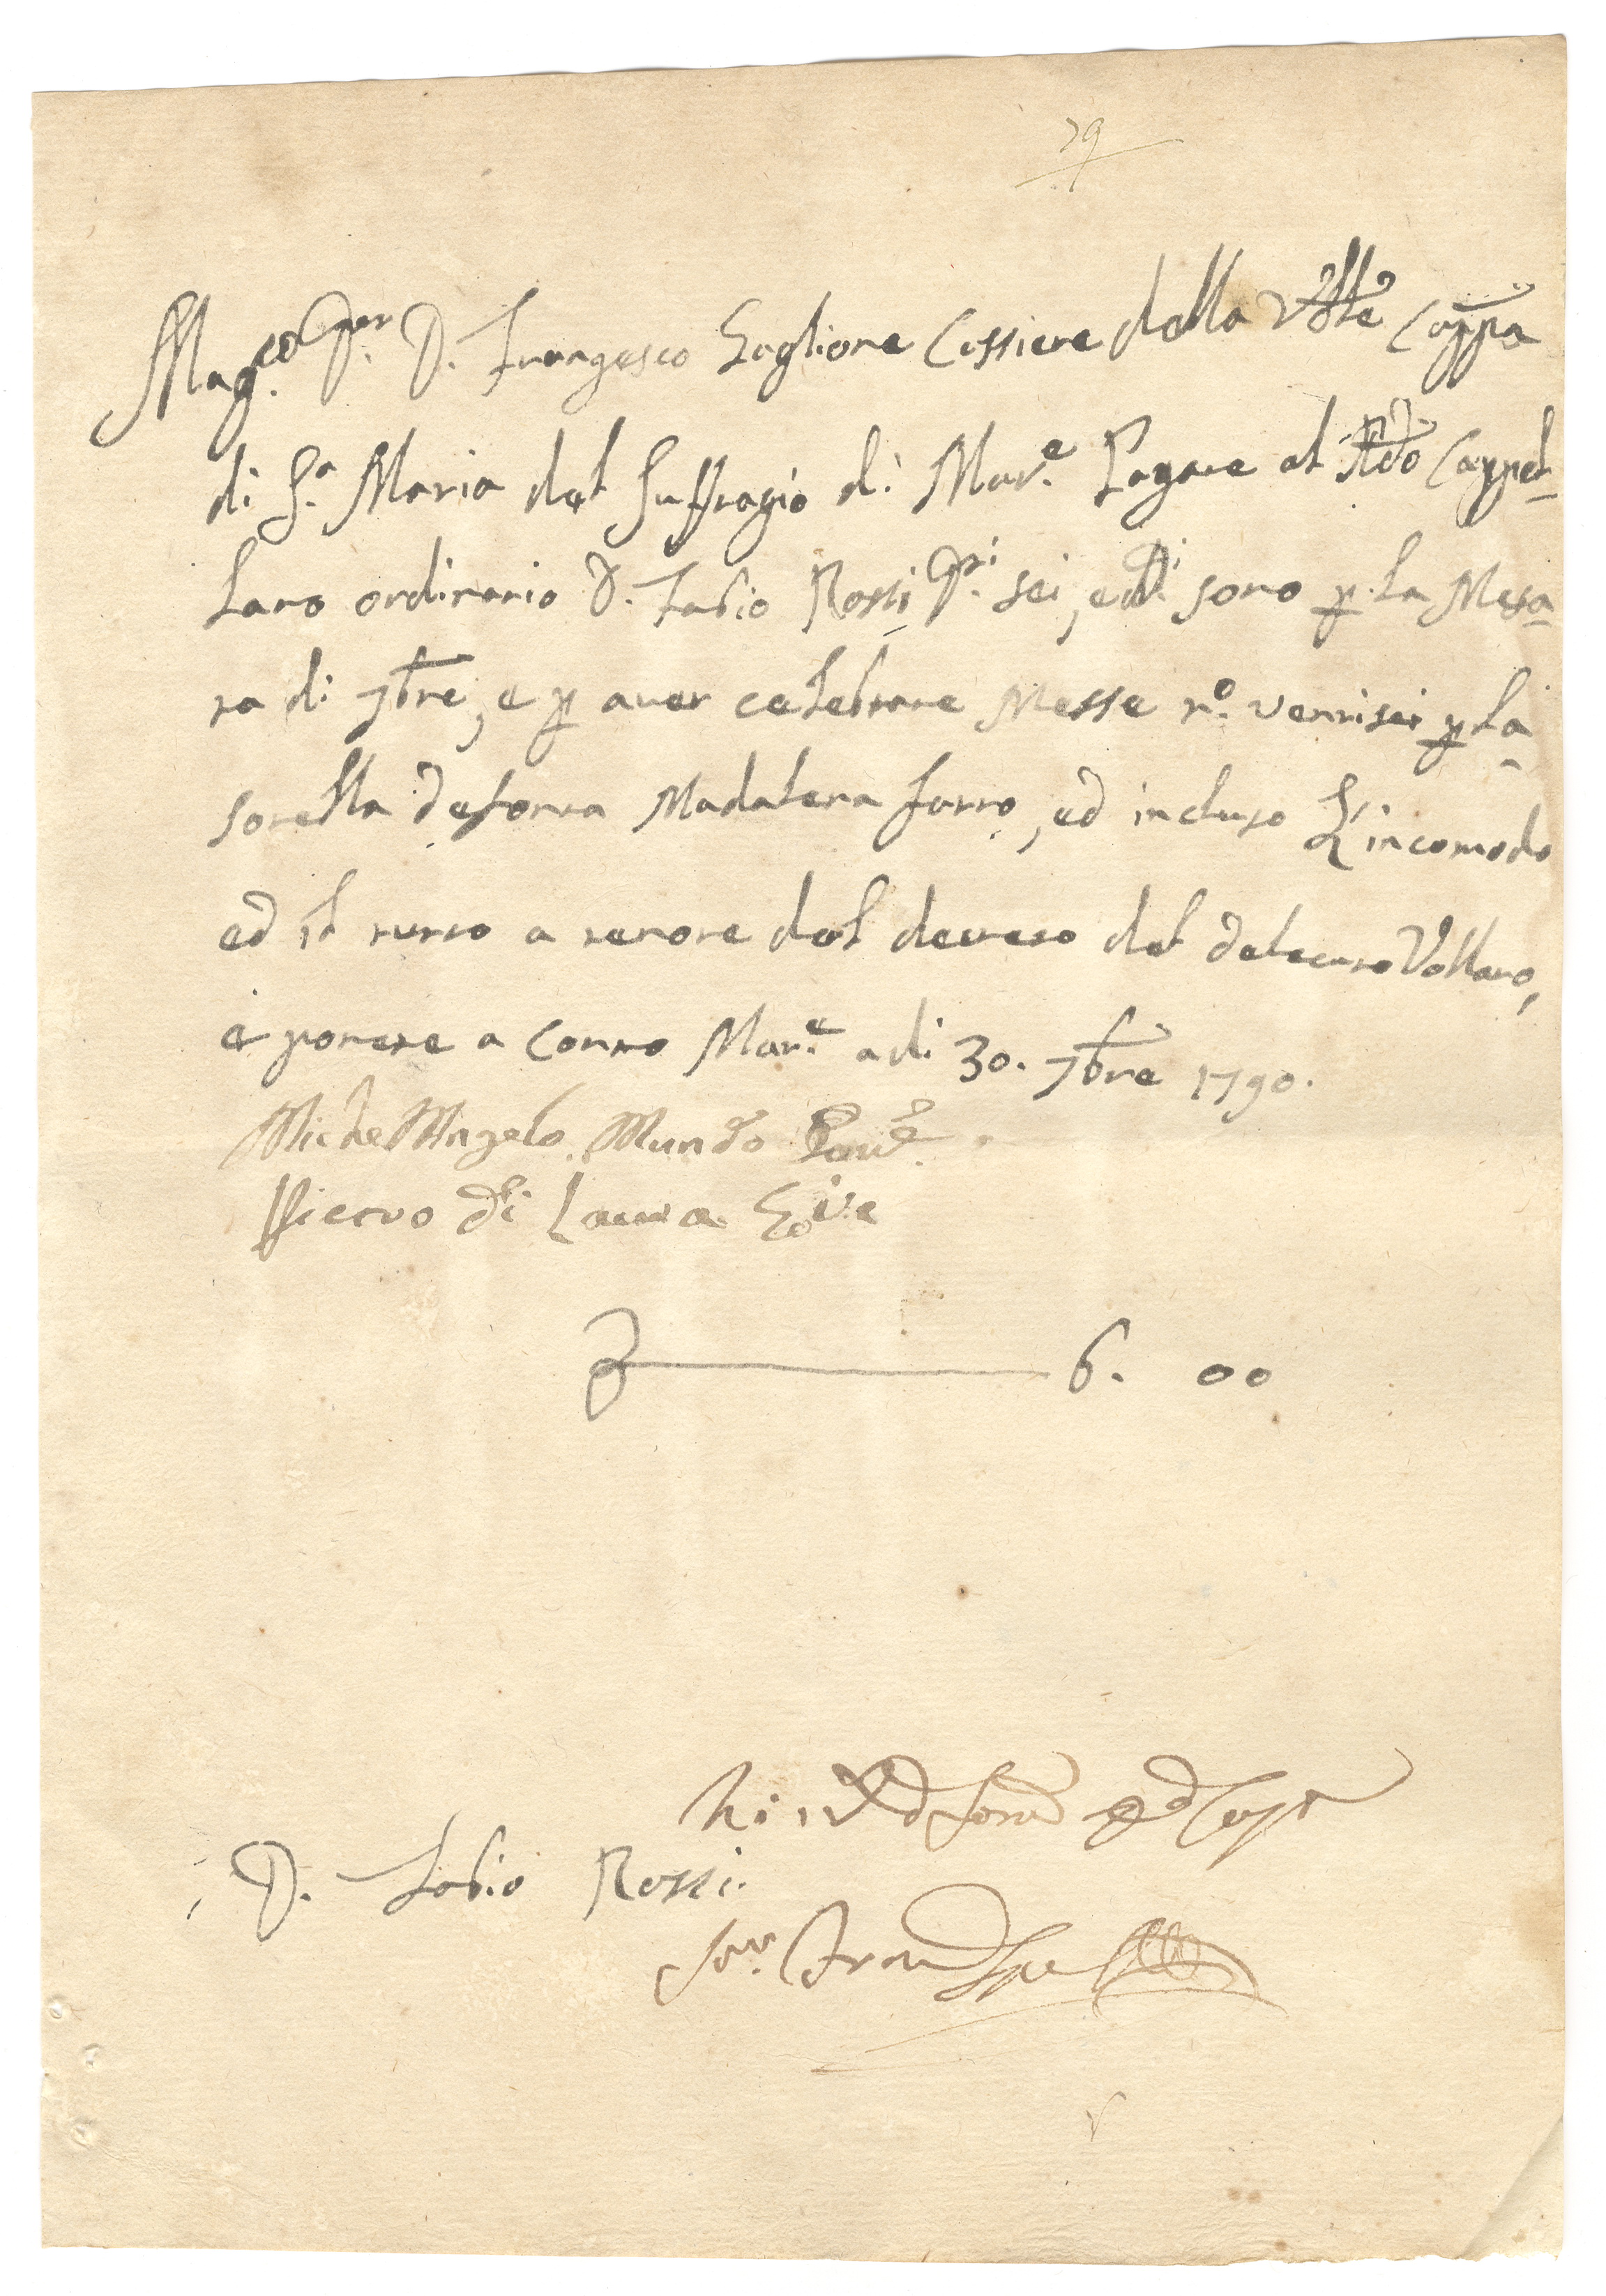 29
Mag.co Sig.r D. Francesco Gaglione Cassiere della Vble Cappa
di S.a Maria del Suffragio di Mar.e Pagate al Rdo Cappel-
lano ordinario D. Fabio Rossi D.ti sei, e d.i sono p la Mesa-
ta di 7bre, e p aver celebrate Messe n.o ventisei p la
sorella defonta Madalena Furno, ed incluso L'incomodo
ed il tutto a tenore del decreto del delecato Vollaro,
e ponete a conto Mar.e a di 30. 7bre 1790.
Michel'Angelo Mundo
Pietro di Laura
D 6. 00
D. Fabio Rossi